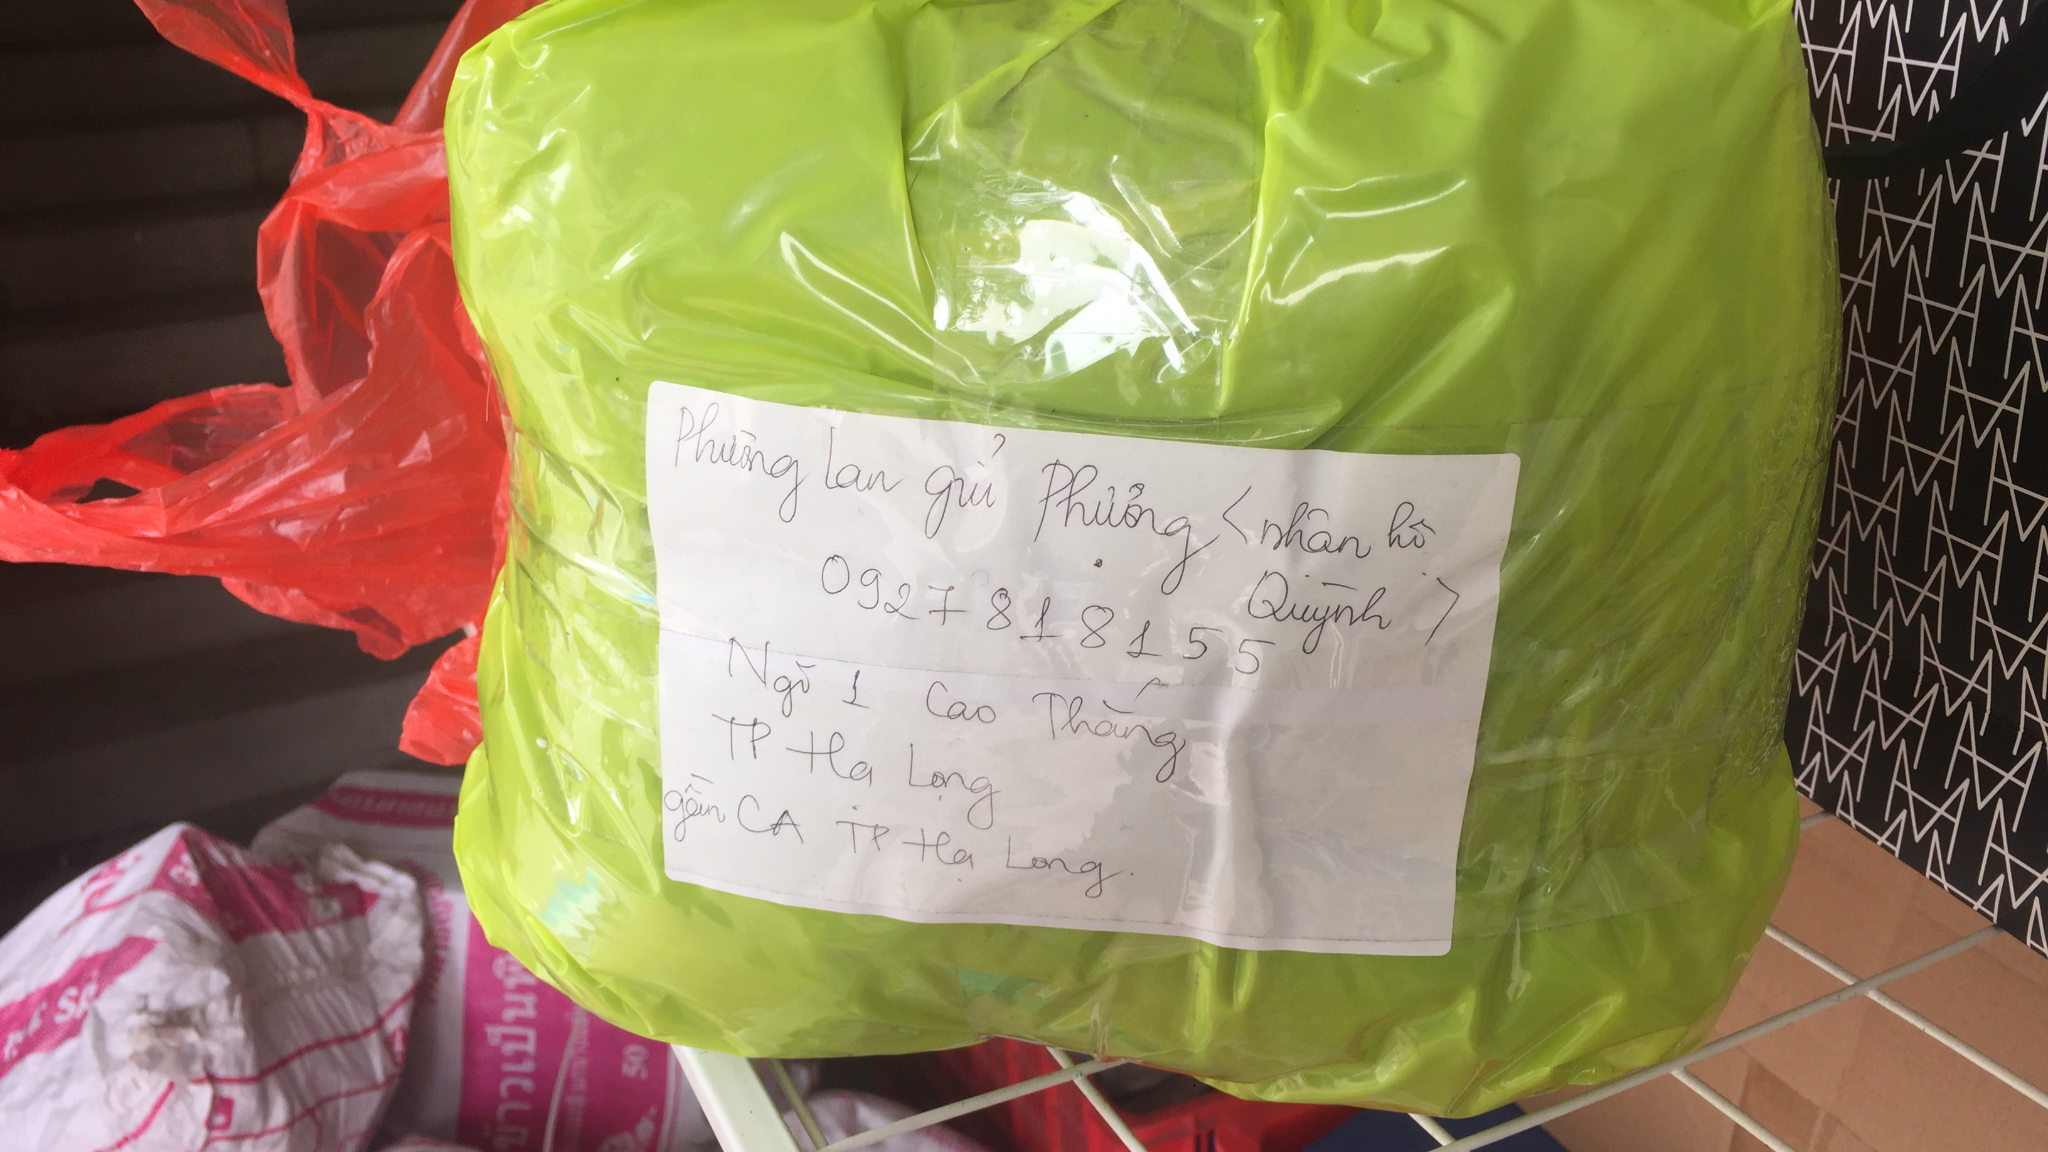 Phương Lan gửi Phưởng <nhận hộ
Quỳnh>
0927818155
Ngõ 1 Cao Thắng
TP Hạ Long
gần CA TP Hạ Long.
50